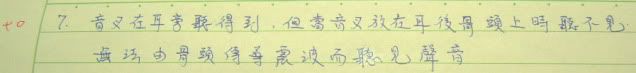 +0 7. 音叉在耳旁聽得到,但當音叉放在耳後骨頭上時聽不見.
無法由骨頭傳導震波而聽見聲音